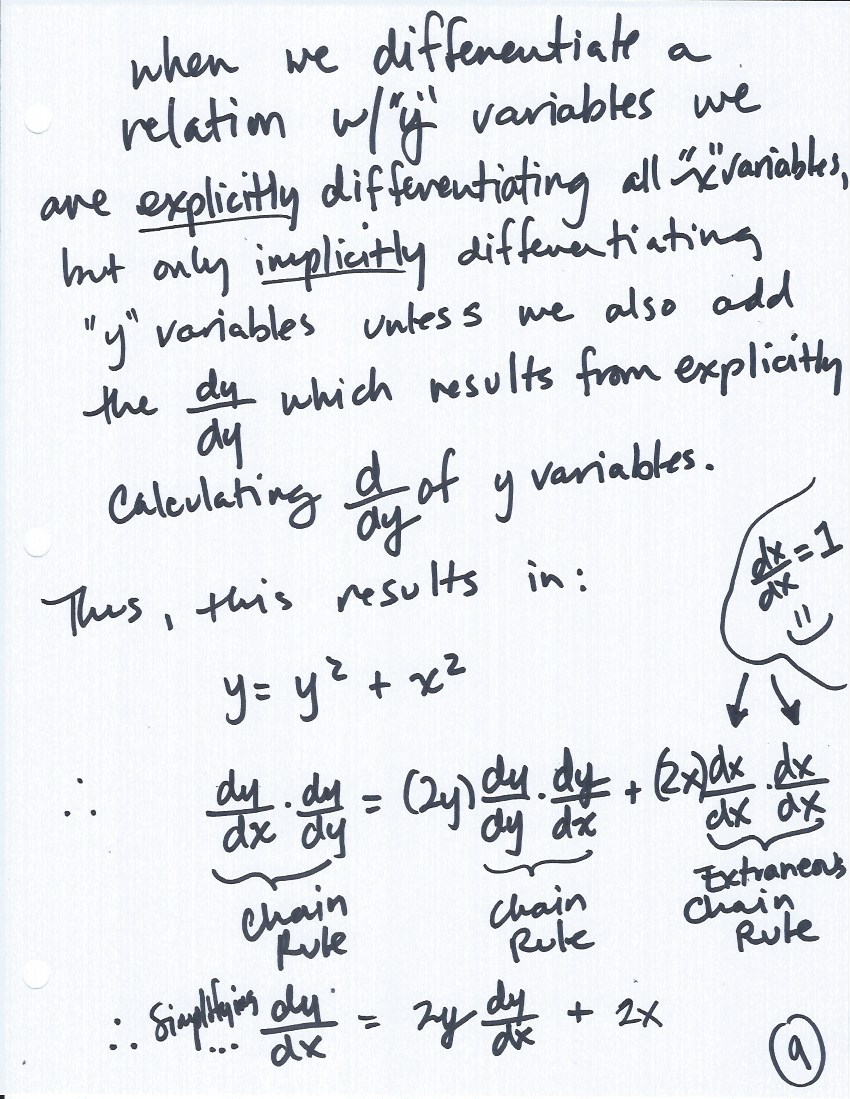 when we differentiate a
relation w/"y" variables we
are explicitly differentiating all "x" variables,
but only implicitly differentiating
"y" variables unless we also add
the dy/dy which results from explicitly
Calculating d/dy of y variables.
Thus, this results in:
dx/dx = 1
y = y² + x²
∴ dy/dx · dy/dy = (2y) dy/dy · dy/dx + (2x) dx/dx · dx/dx
Chain Rule
Chain Rule
Extraneous Chain Rule
∴ Simplifying... dy/dx = 2y dy/dx + 2x
9